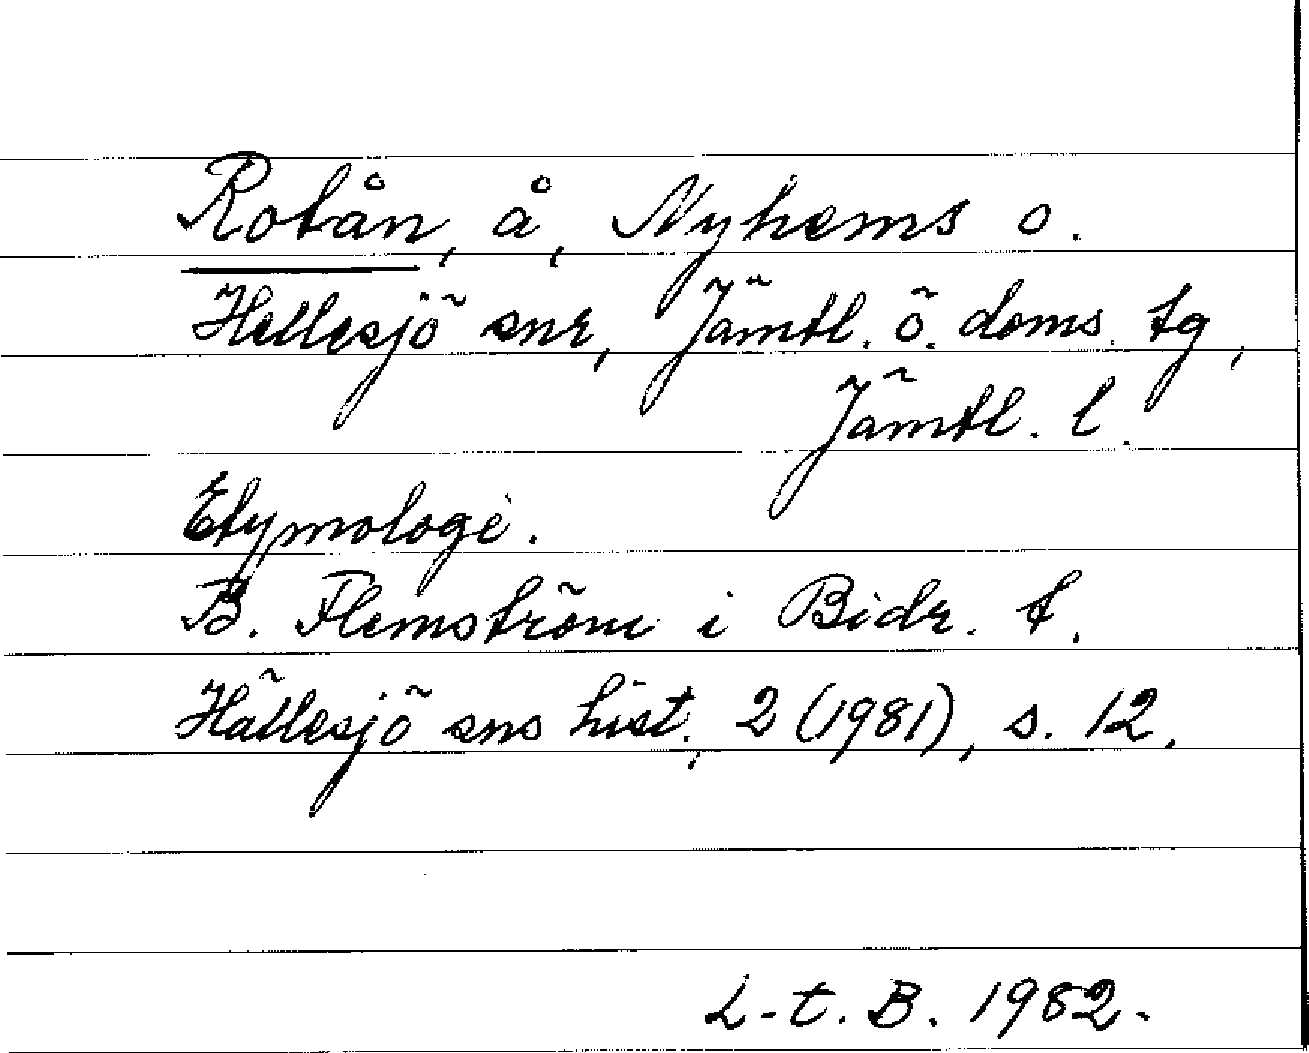 Rotån, å, Nyhems o.
Hällesjö snr, Jämtl. ö. doms. tg,
Jämtl. l.
Etymologi.
B. Flemström i Bidr. t.
Hällesjö sns hist., 2 (1981), s. 12.
L-t. B. 1982.